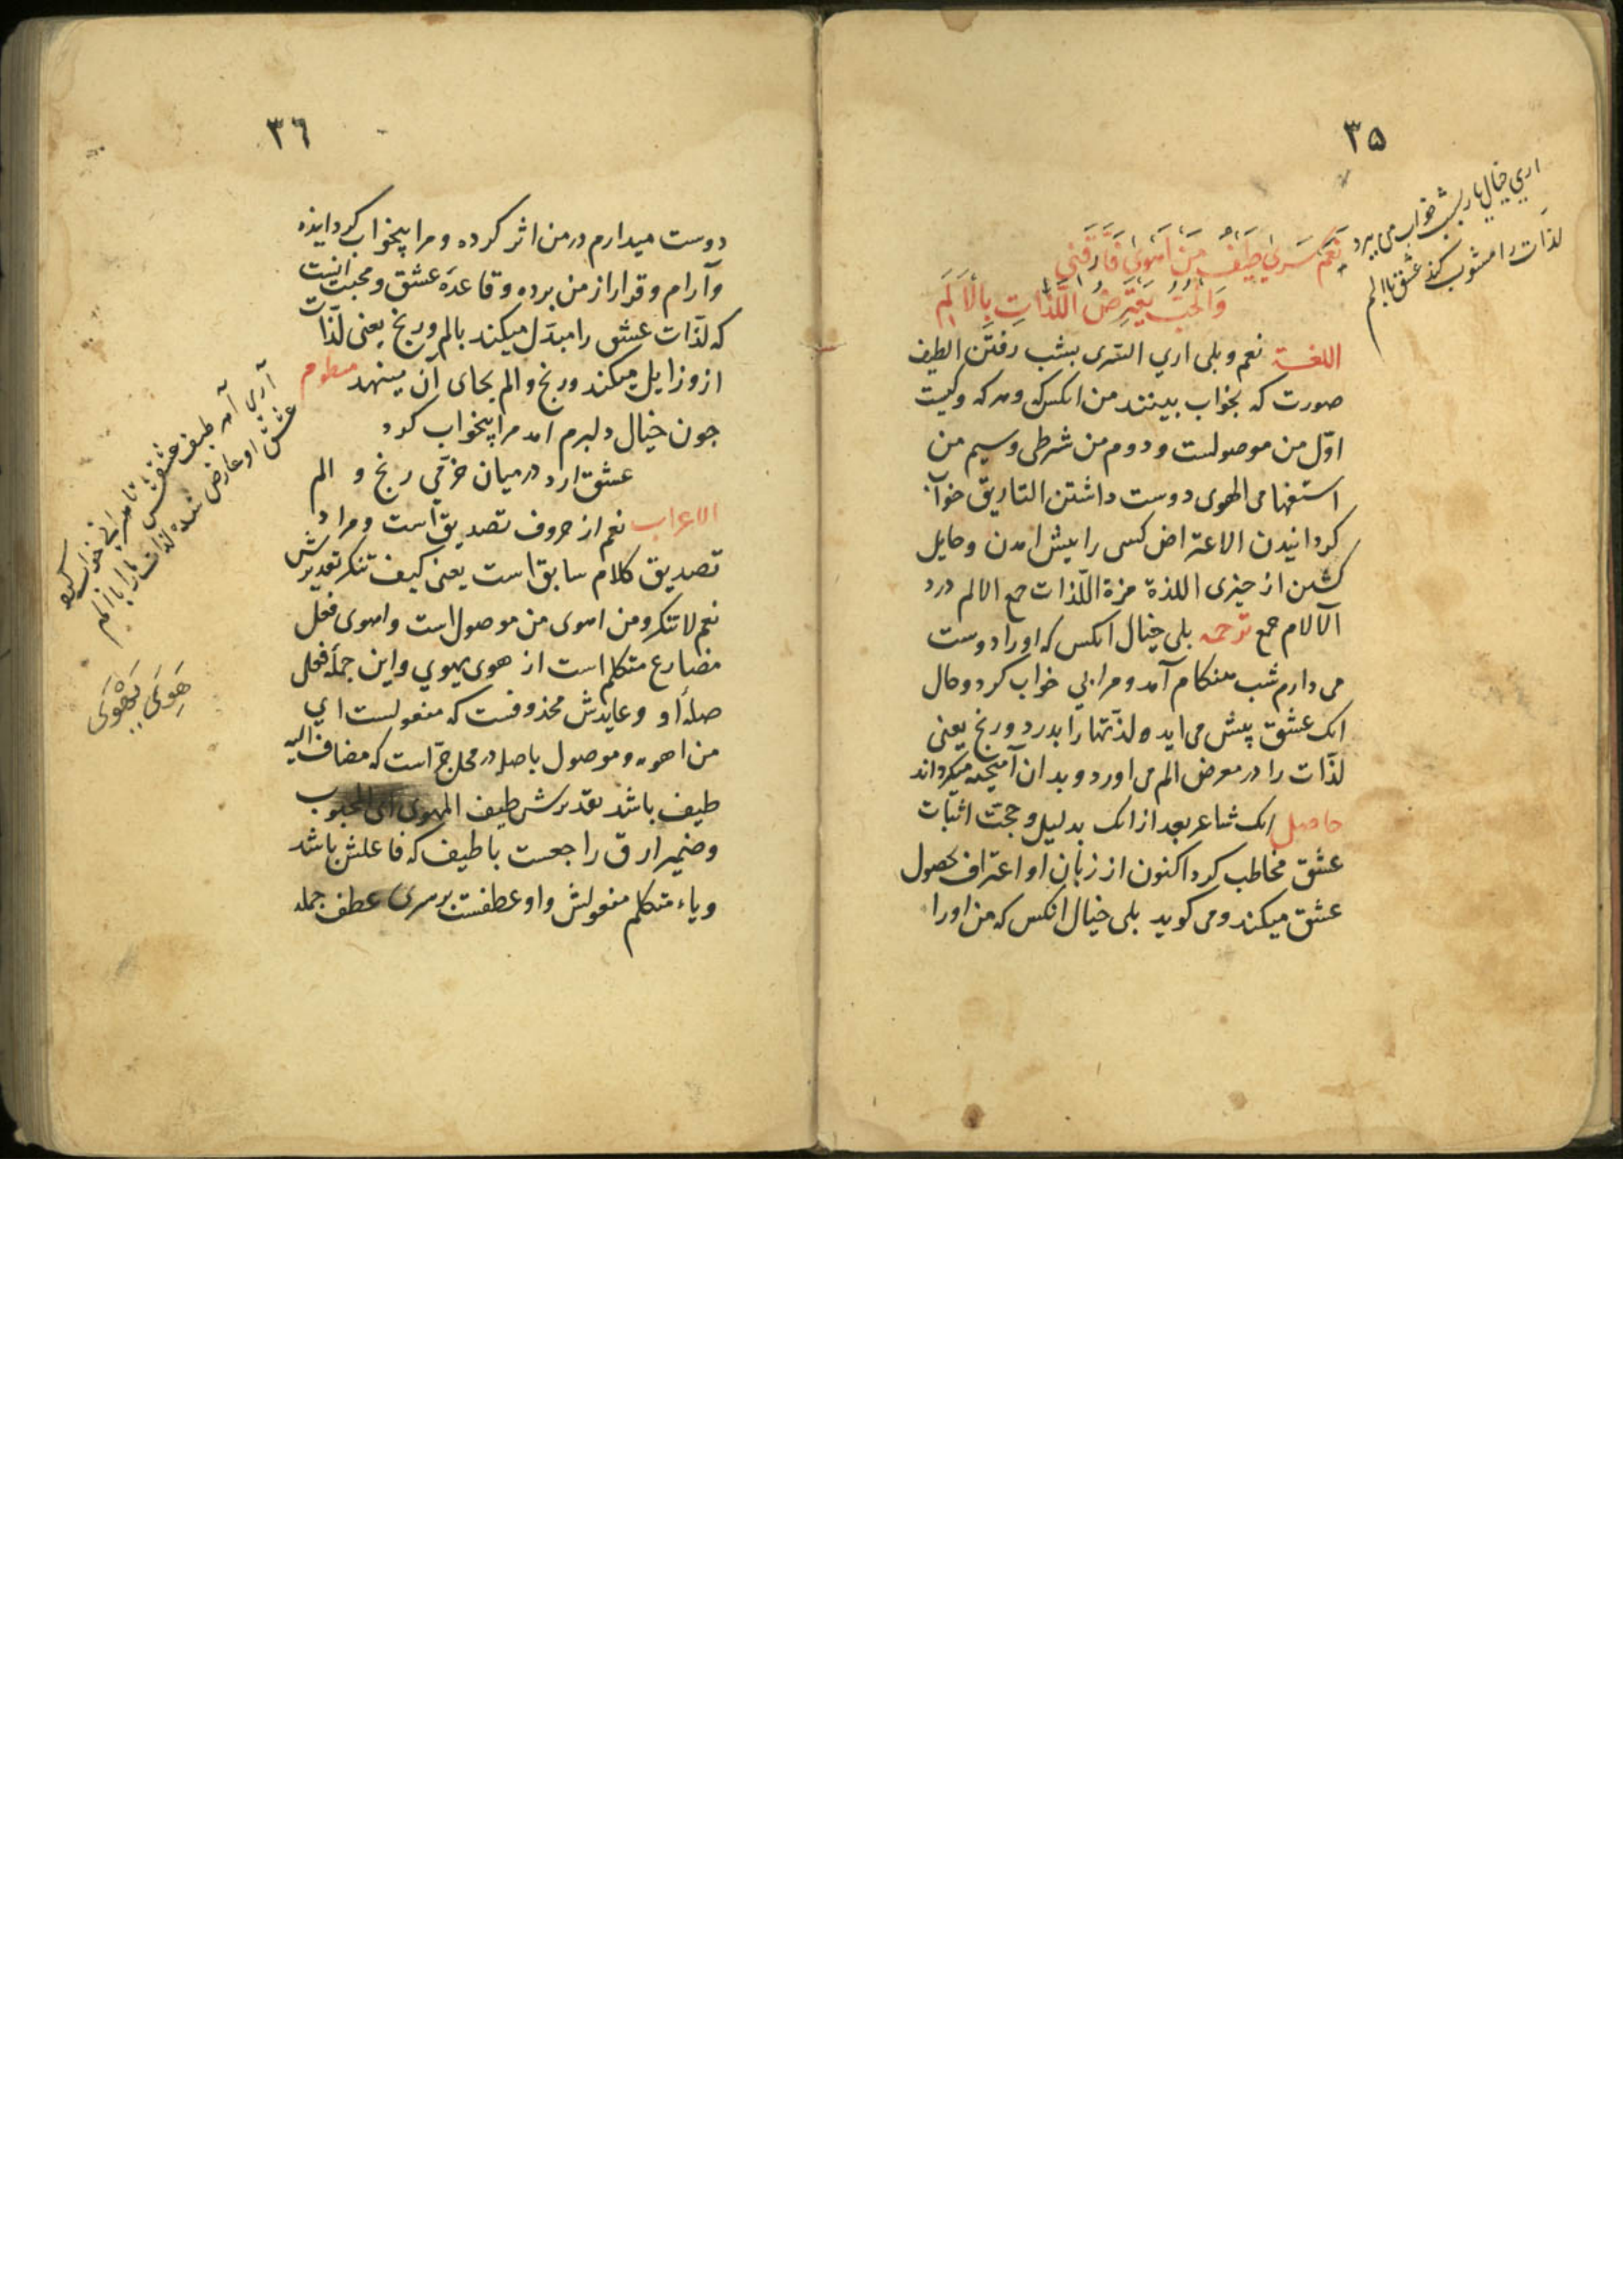 ٣٥
اري خيال يار بشب خواب مى برد
لذات را مشوب كند عشق با الم
نَعَم سَرى طَيفُ مَن اَهوى فَاَرَّقَنى
وَالحُبُّ يَعتَرِضُ اللَّذّاتِ بِالاَلَمِ
اللغة نعم و بلى اري السرى بشب رفتن الطيف
صورت كه بخواب بينند من انكس كه و هر كه و كيست
اوّل من موصولست و دوم من شرطى و سيم من
استفهامى الهوى دوست داشتن التاريق خواب
كردانيدن الاعتراض كسى را پيش امدن و حايل
كشتن از چيزى اللذة مزة اللّذات جمع الالم درد
الآلام جمع ترجمه بلى خيال انكس كه او را دوست
مى دارم شب هنكام آمد و مرا بي خواب كرد و حال
انك عشق پيش مى ايد لذّتها را بدرد و رنج يعنى
لذّات را در معرض الم مى اورد و بدان آميخته ميكرداند
حاصل انك شاعر بعد از انك بدليل و حجت اثبات
عشق مخاطب كرد اكنون از زبان او اعتراف بحصول
عشق ميكند و مى كويد بلى خيال انكس كه من او را
٣٦
دوست ميدارم در من اثر كرده و مرا بيخواب كردانيده
و آرام و قرار از من برده و قاعدهٔ عشق و محبت انيست
كه لذّات عشق را مبدّل ميكند بالم و رنج يعنى لذّات
ازو زايل ميكند و رنج و الم بجاى آن مينهد منظوم
جون خيال دلبرم امد مرا بيخواب كرد
عشق ارد در ميان خرّمي رنج و الم
الاعراب نعم از حروف تصديق است و مرادش
تصديق كلام سابق است يعنى كيف تنكر تقديرش
نعم لا تنكر و من اهوى من موصول است و اهوى فعل
مضارع متكلم است از هوى يهوي و اين جملهٔ فعلى
صلهٔ او و عايدش محذوفست كه مفعولست اي
من اهوه و موصول با صله در محل جرّ است كه مضاف اليه
طيف باشد تقديرش طيف المهوى اى المحبوب
و ضمير ارق راجعست با طيف كه فاعلش باشد
و ياء متكلم مفعولش و او عطفست بر سرى عطف جمله
آري آمد طيف عشقش تا مرا بي خواب كرد
عشق او عارض شده لذات را با الم
هَوِىَ يَهْوَى